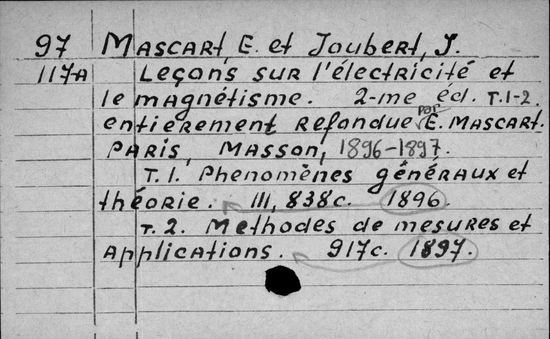 97 Mascart, E. et Joubert, J.
117A Leçons sur l'électricité et
le magnétisme. 2-me éd. T.1-2.
entierement refondue par E. Mascart.
Paris, Masson, 1896-1897.
T. 1. Phenomènes généraux et
théorie. III, 838c. 1896.
T. 2. Methodes de mesures et
applications. 917c. 1897.